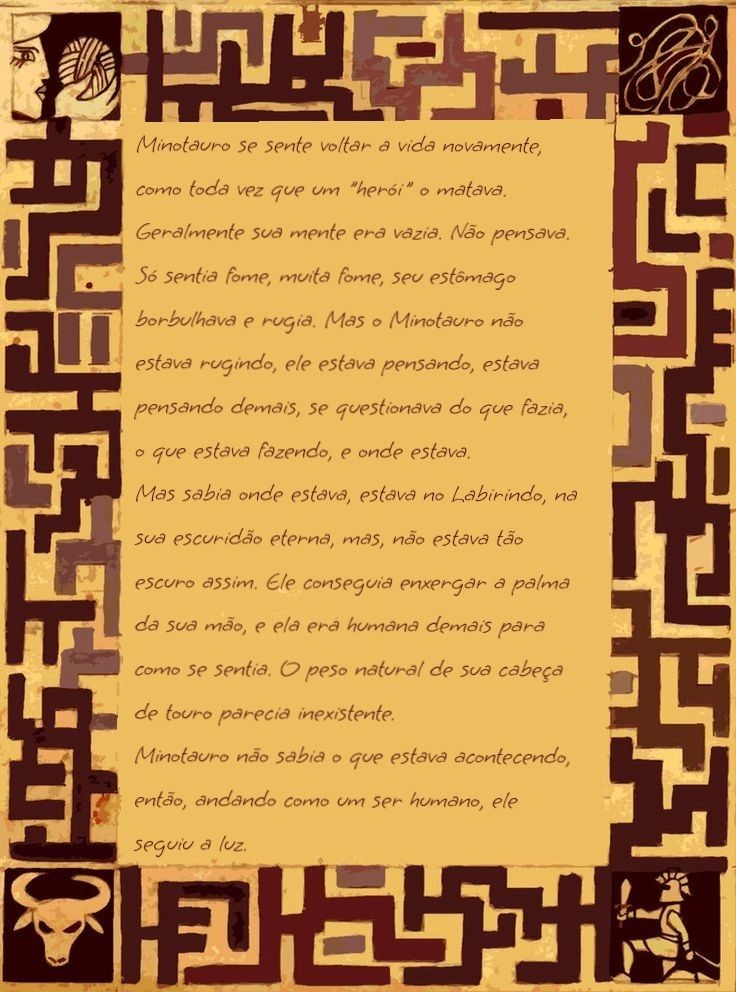 Minotauro se sente voltar a vida novamente,
como toda vez que um "herói" o matava.
Geralmente sua mente era vazia. Não pensava.
Só sentia fome, muita fome, seu estômago
borbulhava e rugia. Mas o Minotauro não
estava rugindo, ele estava pensando, estava
pensando demais, se questionava do que fazia,
o que estava fazendo, e onde estava.
Mas sabia onde estava, estava no Labirindo, na
sua escuridão eterna, mas, não estava tão
escuro assim. Ele conseguia enxergar a palma
da sua mão, e ela era humana demais para
como se sentia. O peso natural de sua cabeça
de touro parecia inexistente.
Minotauro não sabia o que estava acontecendo,
então, andando como um ser humano, ele
seguiu a luz.